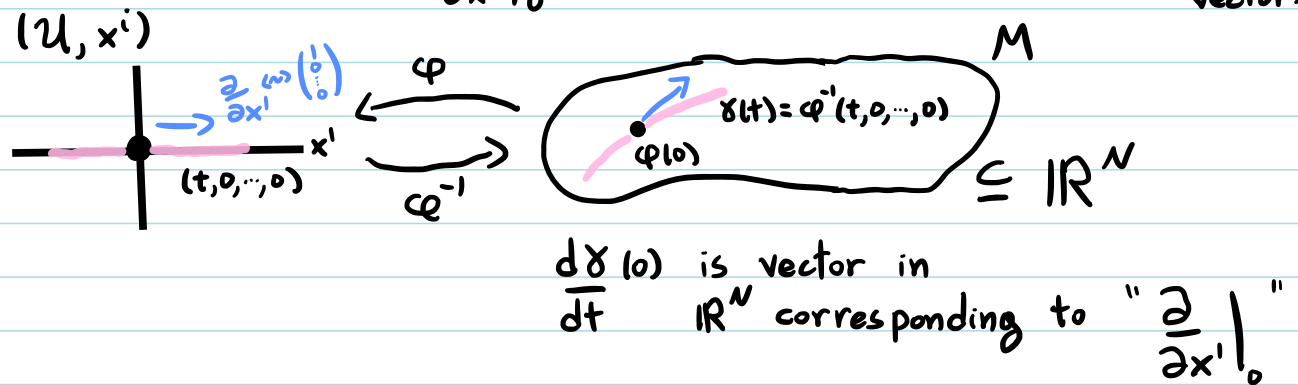 (U, xⁱ)
M
∂/∂x¹ ⟷ (1 0 ⋮ 0)
φ
γ(t) = φ⁻¹(t,0,⋯,0)
x¹
φ(0)
(t,0,⋯,0)
φ⁻¹
⊆ ℝᴺ
dγ/dt (0) is vector in
ℝᴺ corresponding to "∂/∂x¹|₀"